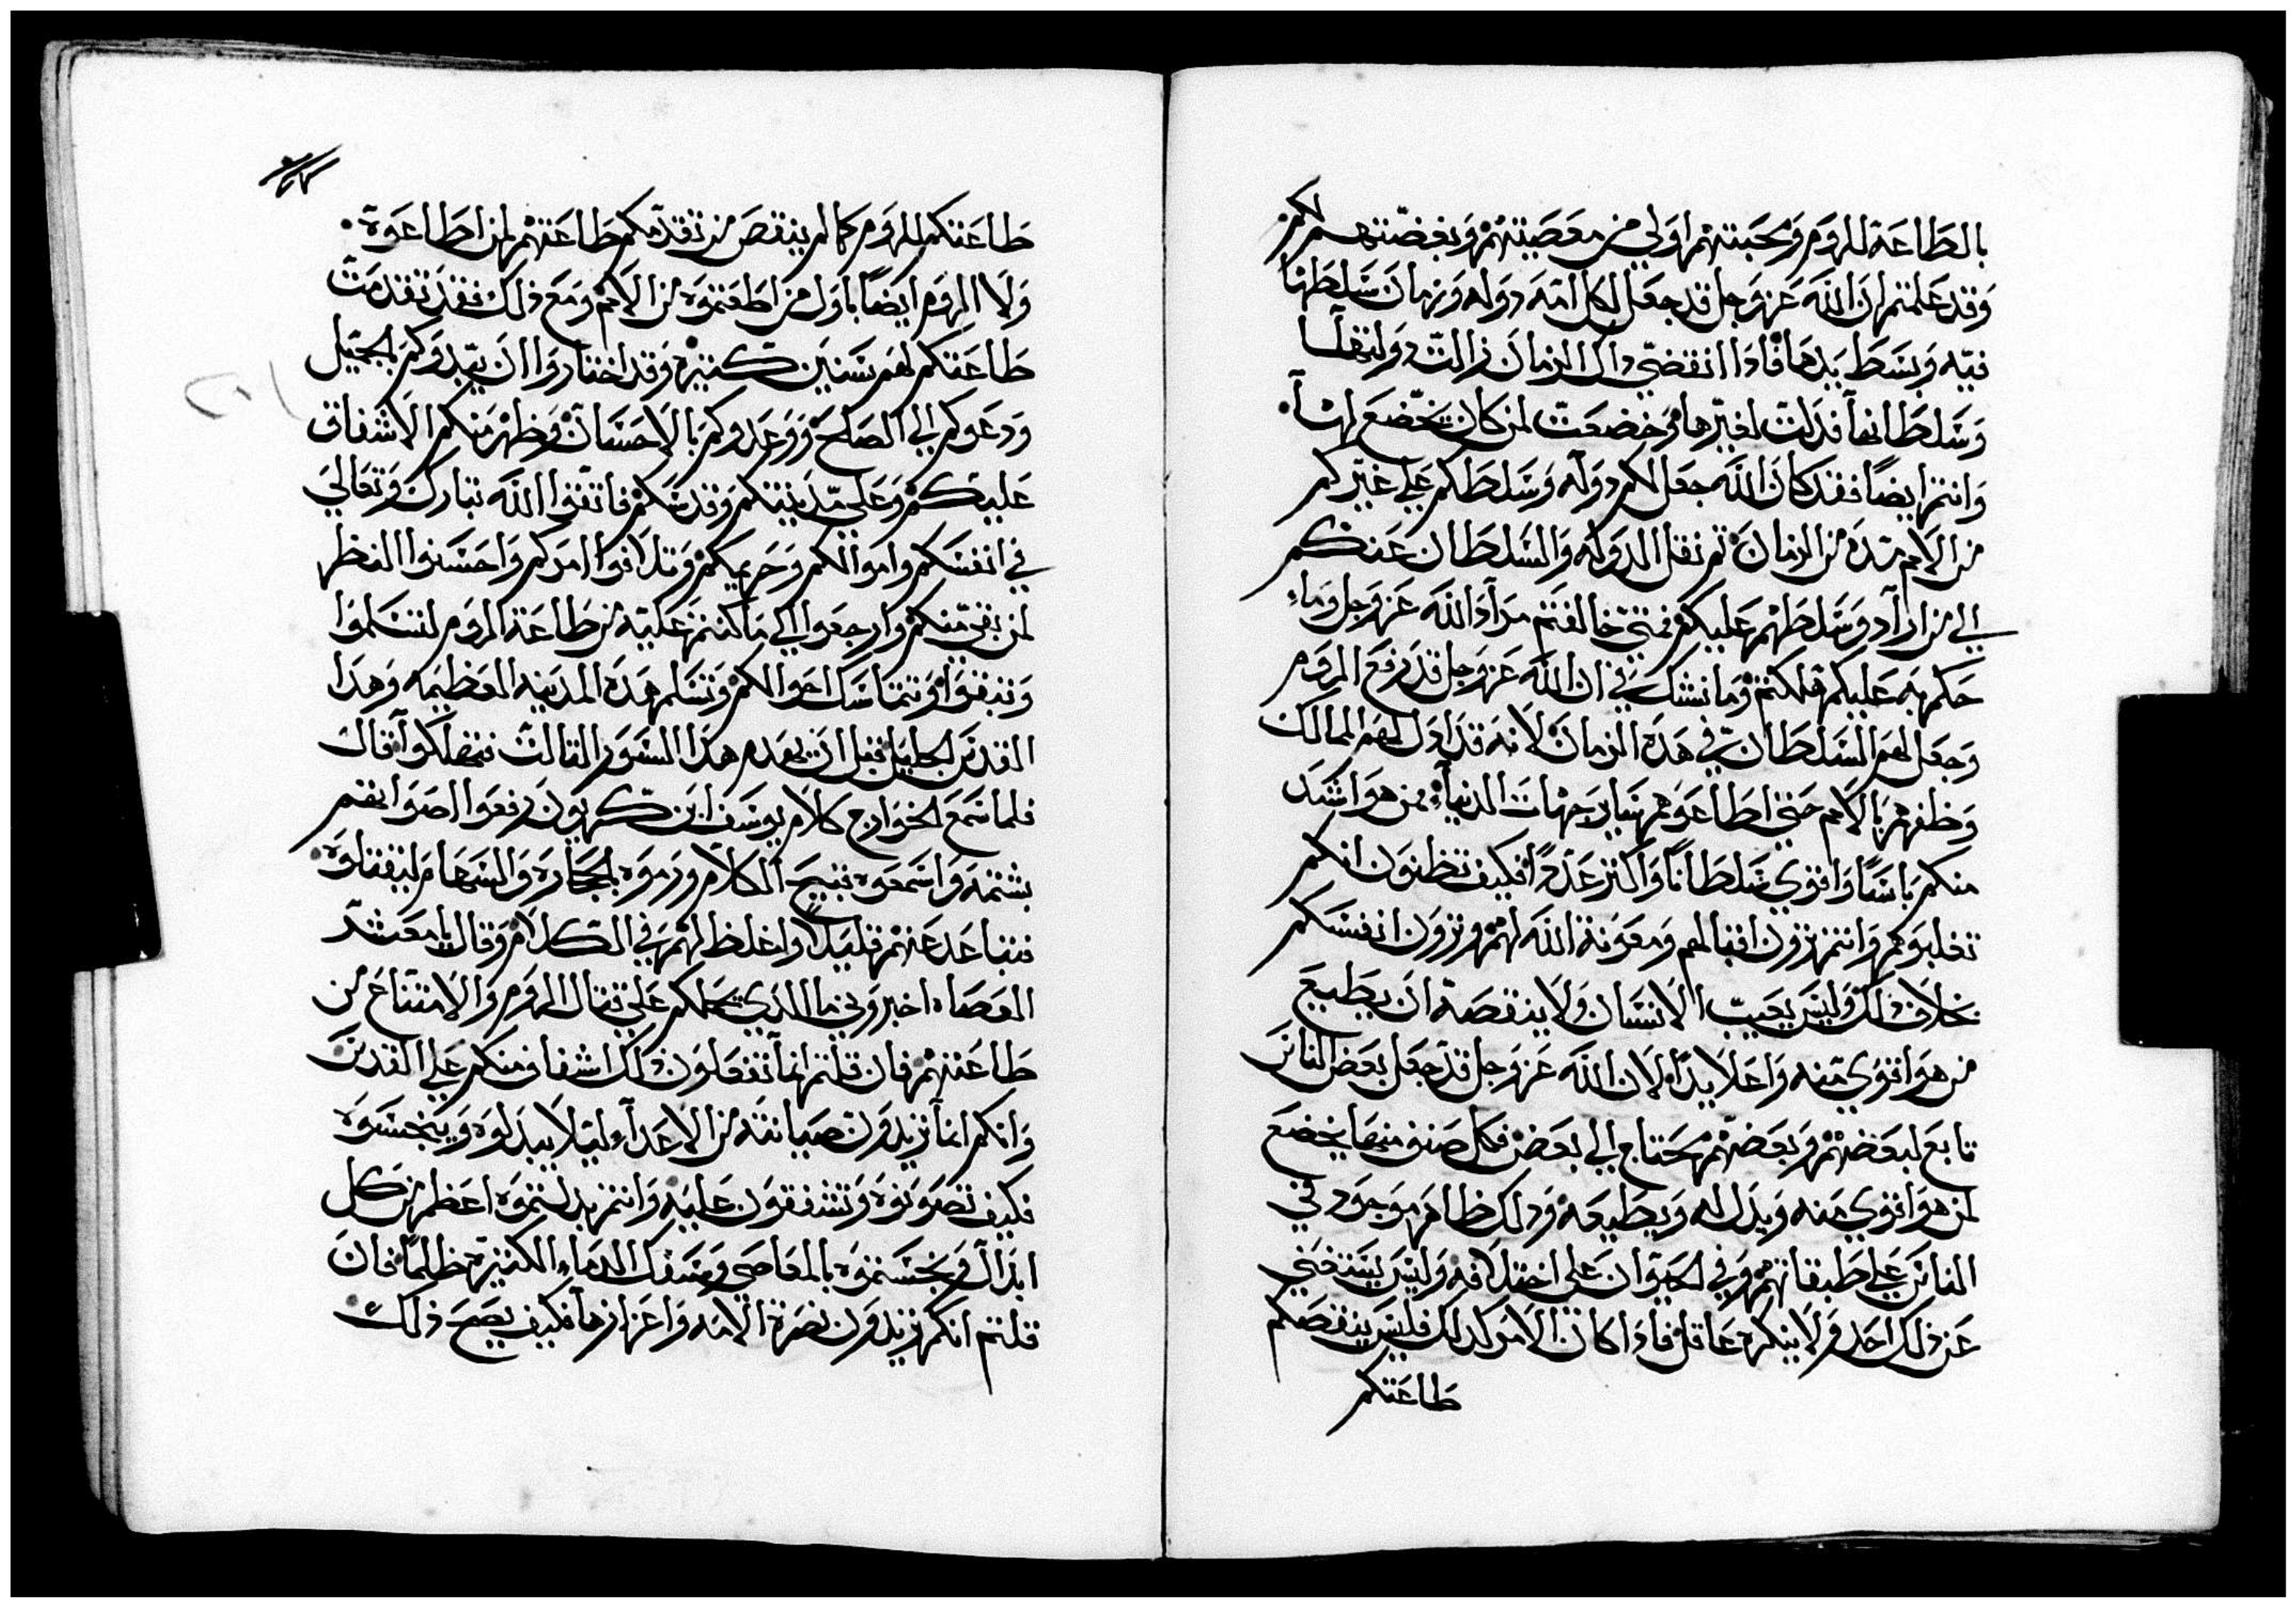 بالطاعة للروم ومحبتهم اولي من معصيتهم وبغضتهم لكم
وقد علمتم ان الله عز وجل قد جعل لكل امه دوله وزمان سلطها
فيه وبسط يدها فادا انقضي داك الزمان زالت دولتها
وسلطانها فدلت لغيرها وخضعت لمن كان يخضع لها
وانتم ايضا فقد كان الله جعل لكم دوله وسلطكم علي غيركم
من الامم مده من الزمان ثم نقل الدوله والسلطان عنكم
الي من اراد وسلطهم عليكم فمتي خالفتم مراد الله عز وجل وما
حكم به عليكم هلكتم وما نشك في ان الله عز وجل قد رفع الروم
وجعل لهم السلطان في هده الزمان لانه قد ادل لهم الممالك
وظفرهم بالامم حتي اطاعوهم ساير جهات الدنيا ممن هو اشد
منكم باسا واقوي سلطانا واكتر عددا فكيف تظنون انكم
تغلبوهم وانتم ترون اقبالهم ومعونة الله لهم وترون انفسكم
بخلاف دلك وليس يعيب الانسان ولا ينقصه ان يطيع
من هو اقوي منه واعلا يدا لان الله عز وجل قد جعل بعض الناس
تابع لبعضهم وبعضهم محتاج الي بعض فكل صنف منها يخضع
لمن هو اقوي منه ويدل له ويطيعه ودلك ظاهر موجود في
الناس علي طبقاتهم وفي الحيوان علي اختلافه وليس يستغني
عن دلك احد ولا ينكره عاقل فادا كان الامر كدلك فليس ينقصكم
طاعتكم
طاعتكم للروم كما لم ينقص من تقدمكم طاعتهم لمن اطاعوه
ولا الروم ايضا باول من اطعتموه من الامم ومع دلك فقد تقدمت
طاعتكم لهم سنين كتيره وقد اختاروا ان يبدوكم بالجميل
ودعوكم الي الصلح ووعدوكم بالاحسان وظهر منكم الاشفاق
عليكم وعلي مدينتكم وقدسكم فاتقوا الله تبارك وتعالي
في انفسكم واموالكم وحريمكم وتلافوا امركم واحسنوا النظر
لمن بقي منكم وارجعوا الي ما كنتم عليه من طاعة الروم لتسلموا
وتبقوا وتتماسك احوالكم وتسلم هده المدينه العظيمه وهدا
القدس الجليل قبل ان يهدم هدا السور التالت فتهلكوا قال
فلما سمع الخوارج كلام يوسف ابن كريون رفعوا اصواتهم
بشتمه واسمعوه قبيح الكلام ورموه بالحجاره والسهام ليقتلوه
فتباعد عنهم قليلا واغلظ لهم في الكلام وقال يا معشر
العصاه اخبروني ما الدي يحملكم علي قتال الروم والامتناع من
طاعتهم فان قلتم انما تفعلون دلك اشفاق منكم علي القدس
وانكم انما تريدون صيانته من الاعداء ليلا يبدلوه وينجسوه
فكيف تصونوه وتشفقون عليه وانتم بدلتموه اعظم من كل
ابدال ونجستموه بالمعاصي وسفك الدماء الكتيره ظلما فان
قلتم انكم تريدون نصرة الامه واعزازها فكيف يصح دلك